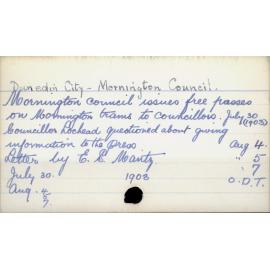 Dunedin City - Mornington Council.
Mornington council issues free passes
on Mornington trams to councillors. July 30
(1903)
Councillor Lochead questioned about giving
information to the Press Aug 4.
Letter by E. E. Mantz. " 5
" 7
July 30. 1903 O.D.T.
Aug. 4
5
7